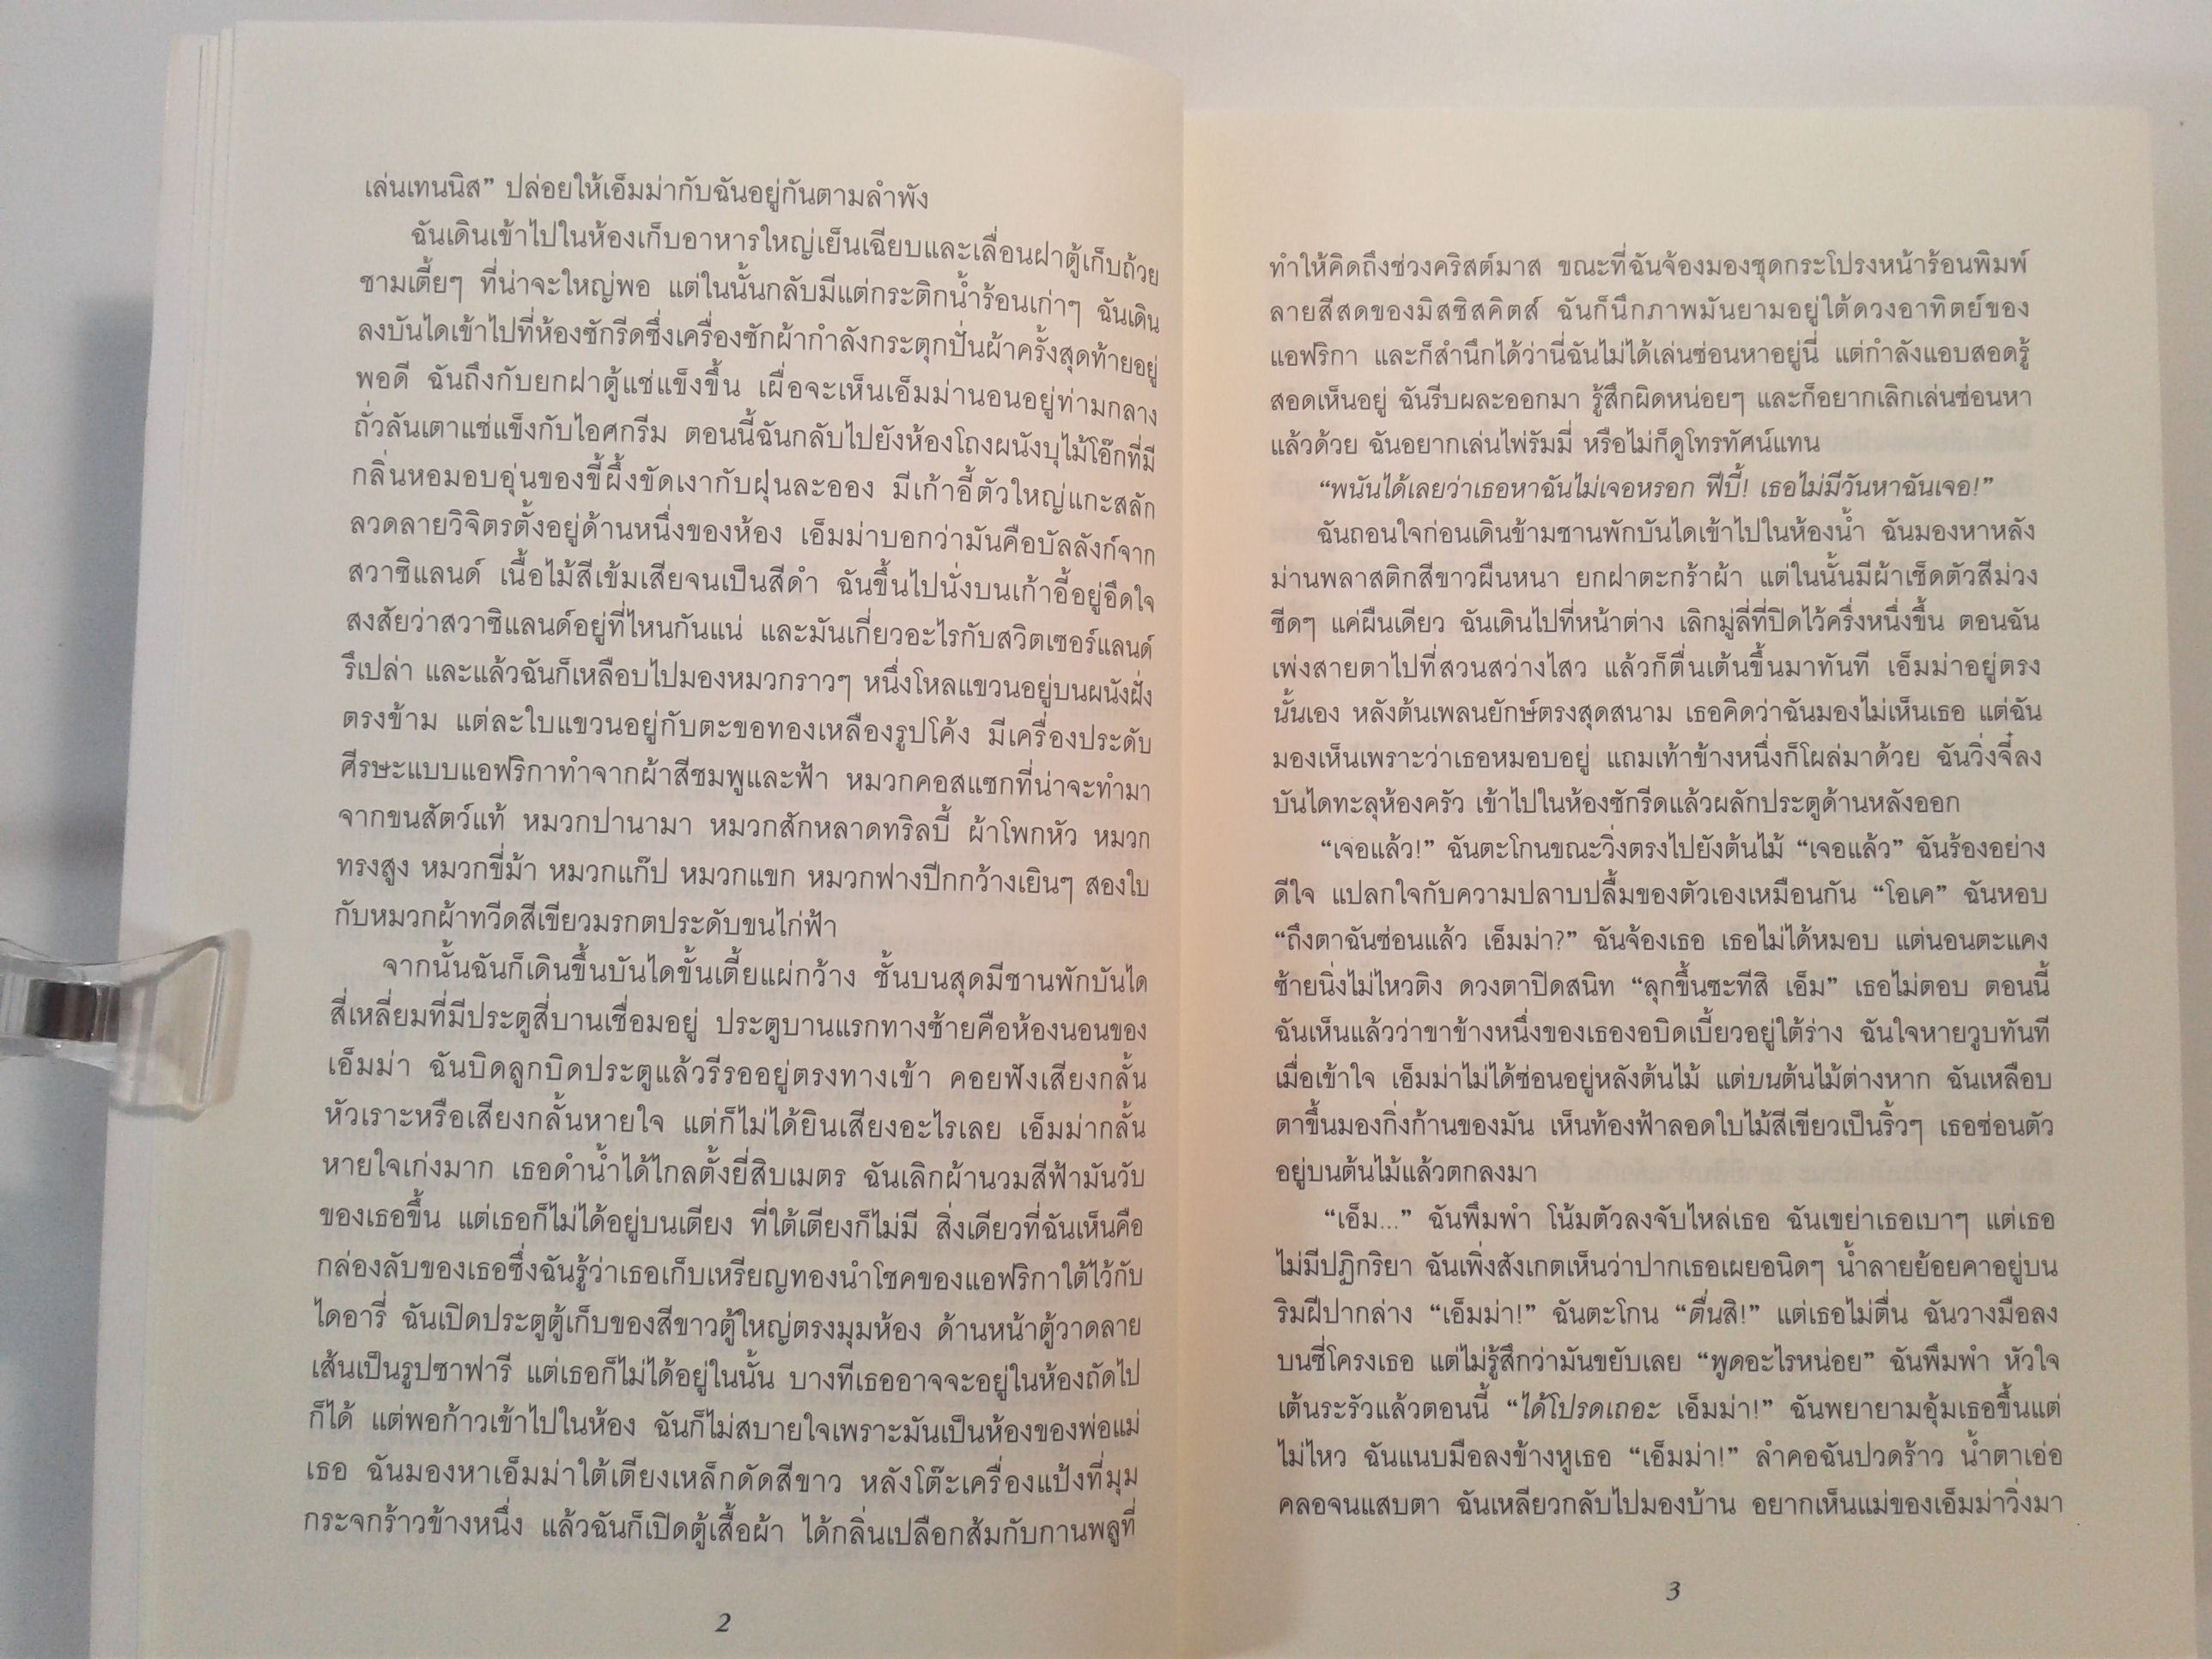 เล่นเทนนิส” ปล่อยให้เอ็มม่ากับฉันอยู่กันตามลำพัง
ฉันเดินเข้าไปในห้องเก็บอาหารใหญ่เย็นเฉียบและเลื่อนฝาตู้เก็บถ้วย
ชามเตี้ยๆ ที่น่าจะใหญ่พอ แต่ในนั้นกลับมีแต่กระติกน้ำร้อนเก่าๆ ฉันเดิน
ลงบันไดเข้าไปที่ห้องซักรีดซึ่งเครื่องซักผ้ากำลังกระตุกปั่นผ้าครั้งสุดท้ายอยู่
พอดี ฉันถึงกับยกฝาตู้แช่แข็งขึ้น เผื่อจะเห็นเอ็มม่านอนอยู่ท่ามกลาง
ถั่วลันเตาแช่แข็งกับไอศกรีม ตอนนี้ฉันกลับไปยังห้องโถงผนังบุไม้โอ๊กที่มี
กลิ่นหอมอบอุ่นของขี้ผึ้งขัดเงากับฝุ่นละออง มีเก้าอี้ตัวใหญ่แกะสลัก
ลวดลายวิจิตรตั้งอยู่ด้านหนึ่งของห้อง เอ็มม่าบอกว่ามันคือบัลลังก์จาก
สวาซิแลนด์ เนื้อไม้สีเข้มเสียจนเป็นสีดำ ฉันขึ้นไปนั่งบนเก้าอี้อยู่อึดใจ
สงสัยว่าสวาซิแลนด์อยู่ที่ไหนกันแน่ และมันเกี่ยวอะไรกับสวิตเซอร์แลนด์
รึเปล่า และแล้วฉันก็เหลือบไปมองหมวกราวๆ หนึ่งโหลแขวนอยู่บนผนังฝั่ง
ตรงข้าม แต่ละใบแขวนอยู่กับตะขอทองเหลืองรูปโค้ง มีเครื่องประดับ
ศีรษะแบบแอฟริกาทำจากผ้าสีชมพูและฟ้า หมวกคอสแซกที่น่าจะทำมา
จากขนสัตว์แท้ หมวกปานามา หมวกสักหลาดทริลบี้ ผ้าโพกหัว หมวก
ทรงสูง หมวกขี่ม้า หมวกแก๊ป หมวกแขก หมวกฟางปีกกว้างเยินๆ สองใบ
กับหมวกผ้าทวีดสีเขียวมรกตประดับขนไก่ฟ้า
จากนั้นฉันก็เดินขึ้นบันไดขั้นเตี้ยแผ่กว้าง ชั้นบนสุดมีชานพักบันได
สี่เหลี่ยมที่มีประตูสี่บานเชื่อมอยู่ ประตูบานแรกทางซ้ายคือห้องนอนของ
เอ็มม่า ฉันบิดลูกบิดประตูแล้วรีรออยู่ตรงทางเข้า คอยฟังเสียงกลั้น
หัวเราะหรือเสียงกลั้นหายใจ แต่ก็ไม่ได้ยินเสียงอะไรเลย เอ็มม่ากลั้น
หายใจเก่งมาก เธอดำน้ำได้ไกลตั้งยี่สิบเมตร ฉันเลิกผ้านวมสีฟ้ามันวับ
ของเธอขึ้น แต่เธอก็ไม่ได้อยู่บนเตียง ที่ใต้เตียงก็ไม่มี สิ่งเดียวที่ฉันเห็นคือ
กล่องลับของเธอซึ่งฉันรู้ว่าเธอเก็บเหรียญทองนำโชคของแอฟริกาใต้ไว้กับ
ไดอารี่ ฉันเปิดประตูตู้เก็บของสีขาวตู้ใหญ่ตรงมุมห้อง ด้านหน้าตู้วาดลาย
เส้นเป็นรูปซาฟารี แต่เธอก็ไม่ได้อยู่ในนั้น บางทีเธออาจจะอยู่ในห้องถัดไป
ก็ได้ แต่พอก้าวเข้าไปในห้อง ฉันก็ไม่สบายใจเพราะมันเป็นห้องของพ่อแม่
เธอ ฉันมองหาเอ็มม่าใต้เตียงเหล็กดัดสีขาว หลังโต๊ะเครื่องแป้งที่มุม
กระจกร้าวข้างหนึ่ง แล้วฉันก็เปิดตู้เสื้อผ้า ได้กลิ่นเปลือกส้มกับกานพลูที่
2
ทำให้คิดถึงช่วงคริสต์มาส ขณะที่ฉันจ้องมองชุดกระโปรงหน้าร้อนพิมพ์
ลายสีสดของมิสซิสคิตส์ ฉันก็นึกภาพมันยามอยู่ใต้ดวงอาทิตย์ของ
แอฟริกา และก็สำนึกได้ว่านี่ฉันไม่ได้เล่นซ่อนหาอยู่นี่ แต่กำลังแอบสอดรู้
สอดเห็นอยู่ ฉันรีบผละออกมา รู้สึกผิดหน่อยๆ และก็อยากเลิกเล่นซ่อนหา
แล้วด้วย ฉันอยากเล่นไพ่รัมมี่ หรือไม่ก็ดูโทรทัศน์แทน
“พนันได้เลยว่าเธอหาฉันไม่เจอหรอก ฟีบี้! เธอไม่มีวันหาฉันเจอ!”
ฉันถอนใจก่อนเดินข้ามชานพักบันไดเข้าไปในห้องน้ำ ฉันมองหาหลัง
ม่านพลาสติกสีขาวผืนหนา ยกฝาตะกร้าผ้า แต่ในนั้นมีผ้าเช็ดตัวสีม่วง
ซีดๆ แค่ผืนเดียว ฉันเดินไปที่หน้าต่าง เลิกมู่ลี่ที่ปิดไว้ครึ่งหนึ่งขึ้น ตอนฉัน
เพ่งสายตาไปที่สวนสว่างไสว แล้วก็ตื่นเต้นขึ้นมาทันที เอ็มม่าอยู่ตรง
นั้นเอง หลังต้นเพลนยักษ์ตรงสุดสนาม เธอคิดว่าฉันมองไม่เห็นเธอ แต่ฉัน
มองเห็นเพราะว่าเธอหมอบอยู่ แถมเท้าข้างหนึ่งก็โผล่มาด้วย ฉันวิ่งจี๋ลง
บันไดทะลุห้องครัว เข้าไปในห้องซักรีดแล้วผลักประตูด้านหลังออก
“เจอแล้ว!” ฉันตะโกนขณะวิ่งตรงไปยังต้นไม้ “เจอแล้ว” ฉันร้องอย่าง
ดีใจ แปลกใจกับความปลาบปลื้มของตัวเองเหมือนกัน “โอเค” ฉันหอบ
“ถึงตาฉันซ่อนแล้ว เอ็มม่า?” ฉันจ้องเธอ เธอไม่ได้หมอบ แต่นอนตะแคง
ซ้ายนิ่งไม่ไหวติง ดวงตาปิดสนิท “ลุกขึ้นซะทีสิ เอ็ม” เธอไม่ตอบ ตอนนี้
ฉันเห็นแล้วว่าขาข้างหนึ่งของเธองอบิดเบี้ยวอยู่ใต้ร่าง ฉันใจหายวูบทันที
เมื่อเข้าใจ เอ็มม่าไม่ได้ซ่อนอยู่หลังต้นไม้ แต่บนต้นไม้ต่างหาก ฉันเหลือบ
ตาขึ้นมองกิ่งก้านของมัน เห็นท้องฟ้าลอดใบไม้สีเขียวเป็นริ้วๆ เธอซ่อนตัว
อยู่บนต้นไม้แล้วตกลงมา
“เอ็ม...” ฉันพึมพำ โน้มตัวลงจับไหล่เธอ ฉันเขย่าเธอเบาๆ แต่เธอ
ไม่มีปฏิกริยา ฉันเพิ่งสังเกตเห็นว่าปากเธอเผยอนิดๆ น้ำลายย้อยคาอยู่บน
ริมฝีปากล่าง “เอ็มม่า!” ฉันตะโกน “ตื่นสิ!” แต่เธอไม่ตื่น ฉันวางมือลง
บนซี่โครงเธอ แต่ไม่รู้สึกว่ามันขยับเลย “พูดอะไรหน่อย” ฉันพึมพำ หัวใจ
เต้นระรัวแล้วตอนนี้ “ได้โปรดเถอะ เอ็มม่า!” ฉันพยายามอุ้มเธอขึ้นแต่
ไม่ไหว ฉันแนบมือลงข้างหูเธอ “เอ็มม่า!” ลำคอฉันปวดร้าว น้ำตาเอ่อ
คลอจนแสบตา ฉันเหลียวกลับไปมองบ้าน อยากเห็นแม่ของเอ็มม่าวิ่งมา
3